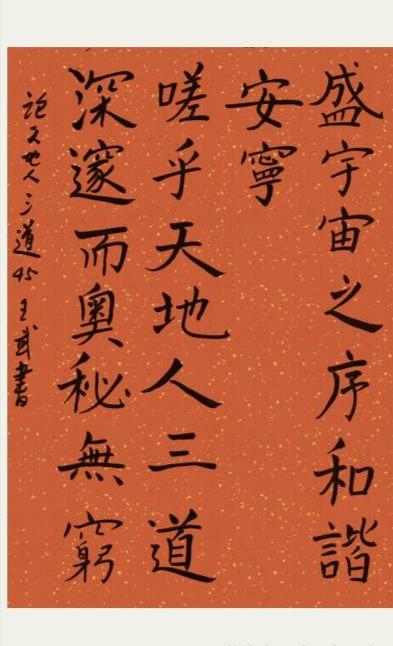 盛宇宙之序和諧
安寧
嗟乎天地人三道
深邃而奧秘無窮
論天地人三道45 王武書